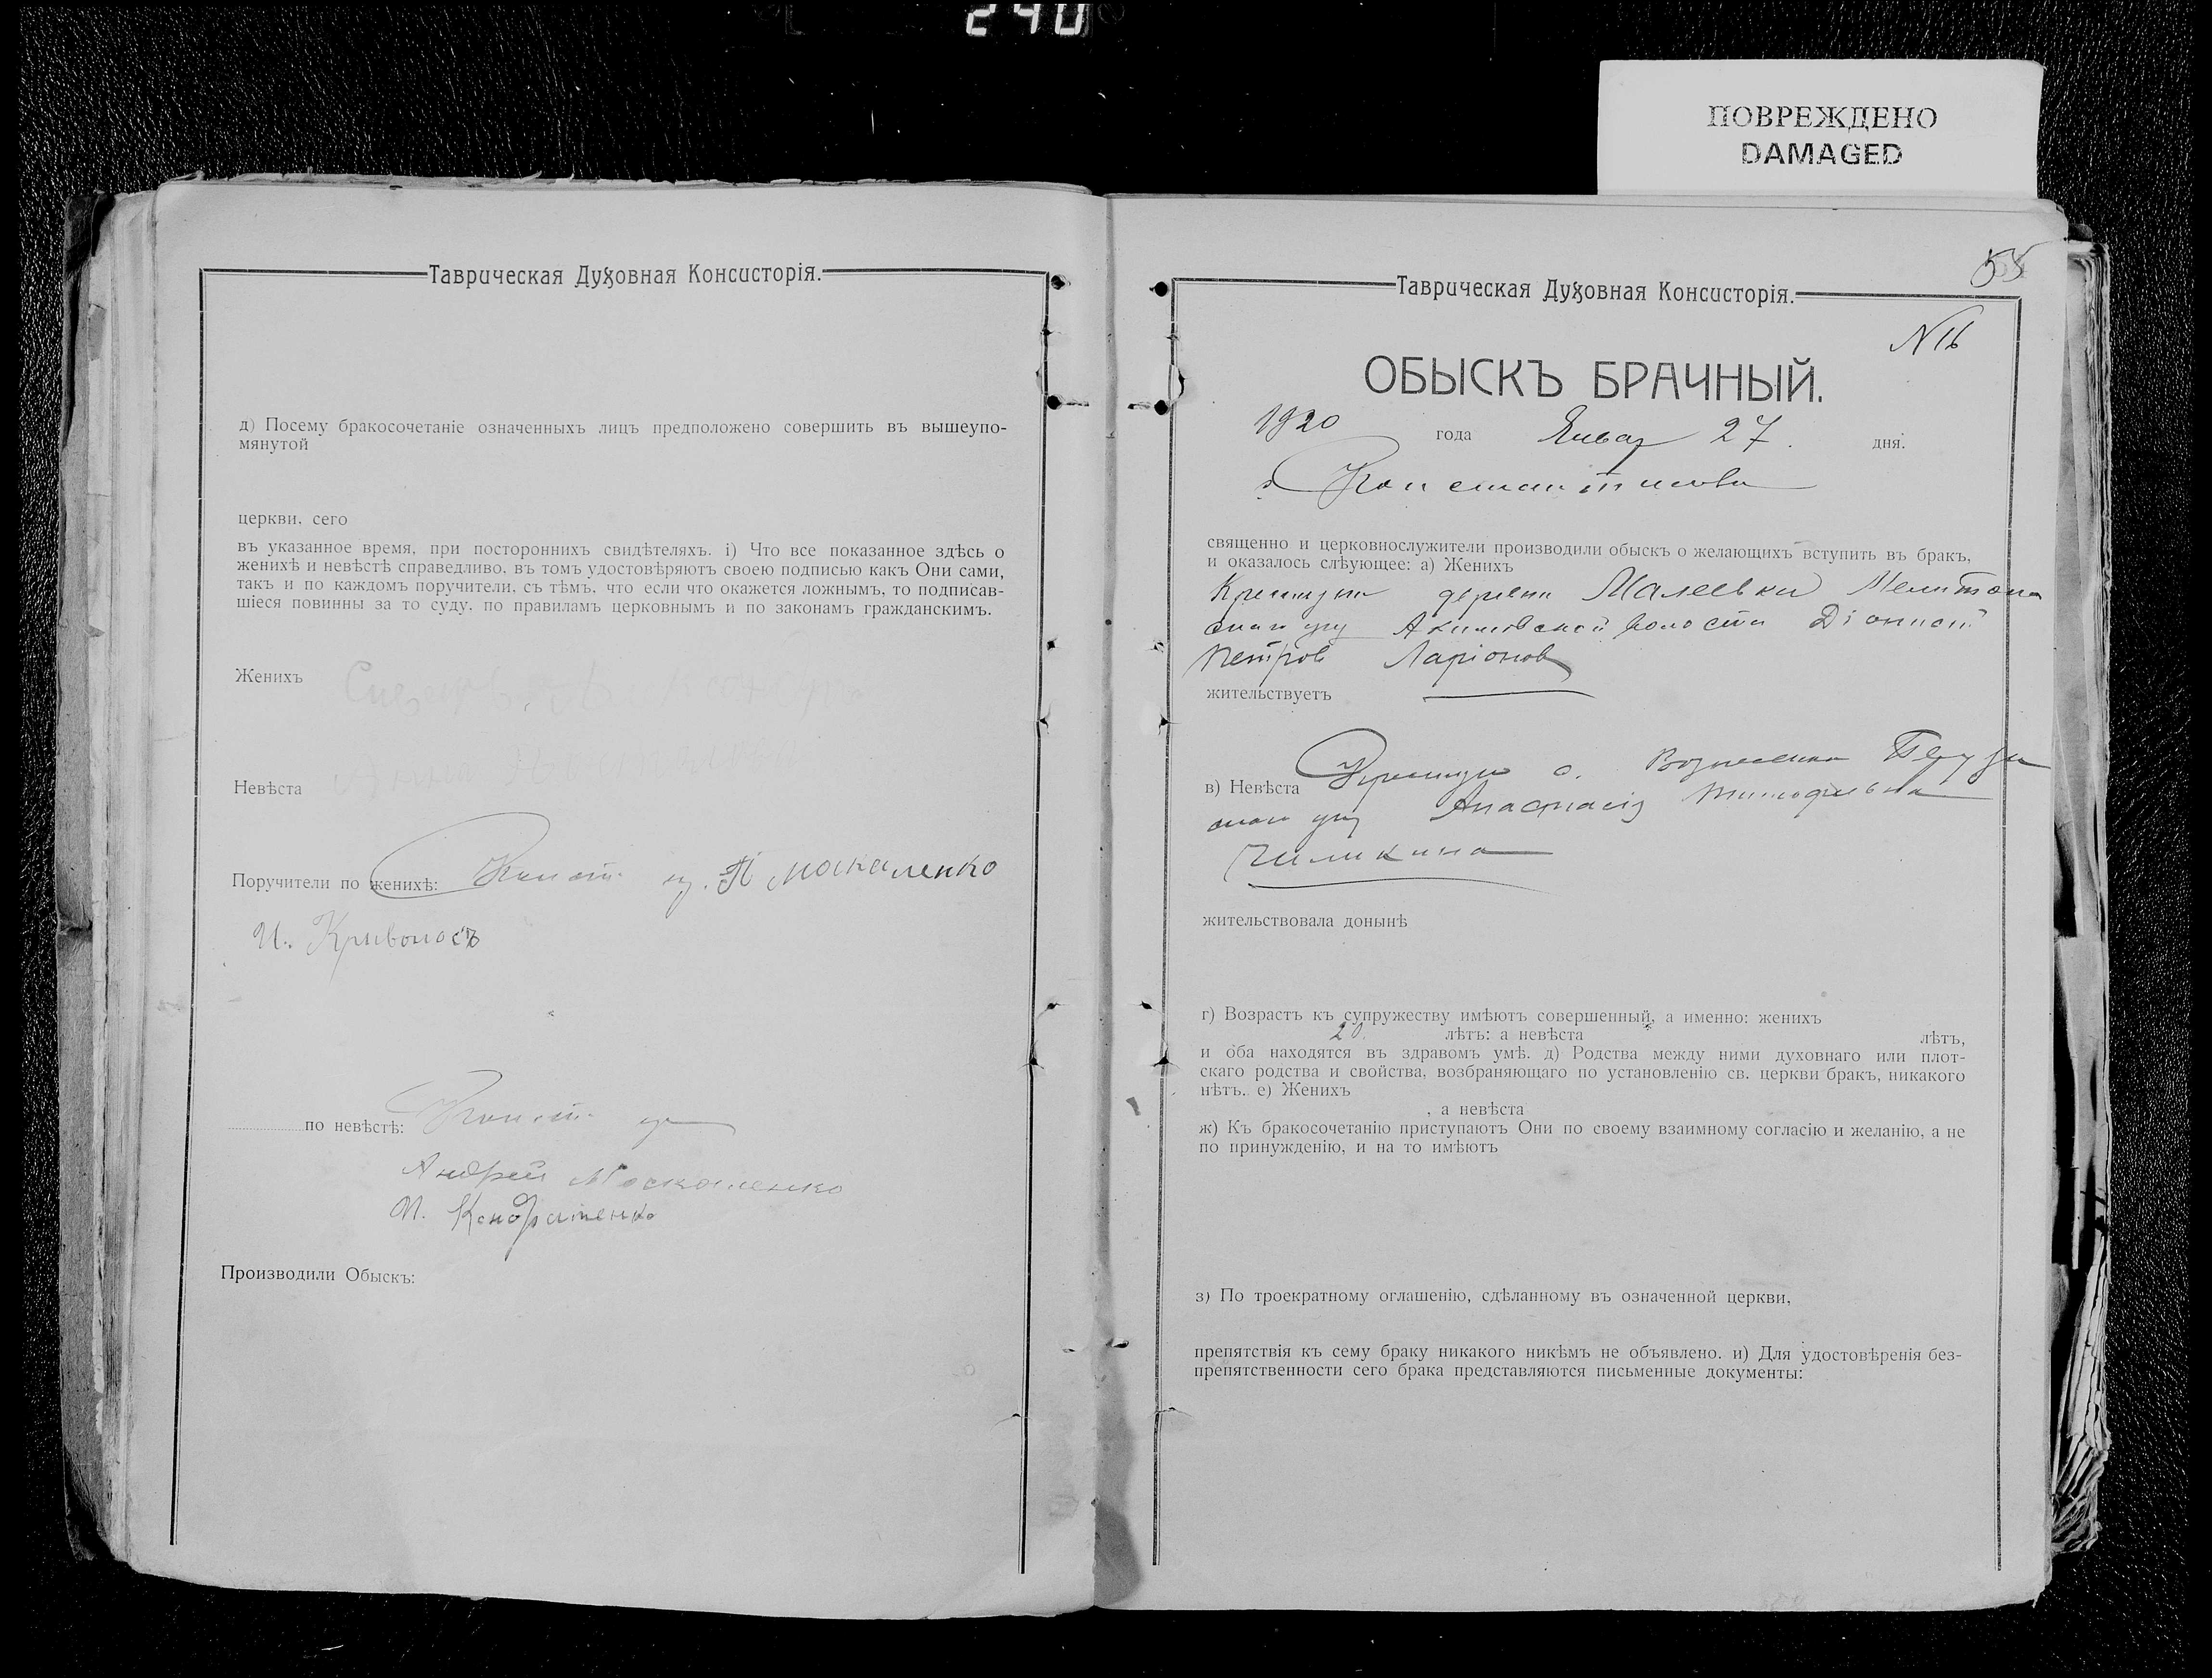 240
ПОВРЕЖДЕНО
DAMAGED
Таврическая Духовная Консисторія.
д) Посему бракосочетаніе означенныхъ лицъ предположено совершить въ вышеупо-
мянутой
церкви, сего
въ указанное время, при постороннихъ свидѣтеляхъ. і) Что все показанное здѣсь о
женихѣ и невѣстѣ справедливо, въ томъ удостовѣряютъ своею подписью какъ Они сами,
такъ и по каждомъ поручители, съ тѣмъ, что если что окажется ложнымъ, то подписав-
шіеся повинны за то суду, по правиламъ церковнымъ и по законамъ гражданскимъ.
Женихъ
Невѣста Анна
Поручители по женихѣ: П Москаленко
И. Кривоносъ
по невѣстѣ:
Андрей Москаленко
И. Кондратенко
Производили Обыскъ:
55
Таврическая Духовная Консисторія.
N 16
ОБЫСКЪ БРАЧНЫЙ.
1920 года Январ 27. дня.
с Константиновки
священно и церковнослужители производили обыскъ о желающихъ вступить въ бракъ,
и оказалось слѣующее: а) Женихъ
деревни Малеевки Мелитопол
Акимовской волости Діонисій
Петровъ Ларіоновъ
жительствуетъ
в) Невѣста с. Вознесенки
Анастасія Тимофеевна
Чиликина
жительствовала донынѣ
г) Возрастъ къ супружеству имѣютъ совершенный, а именно: женихъ
20. лѣтъ: а невѣста лѣтъ,
и оба находятся въ здравомъ умѣ. д) Родства между ними духовнаго или плот-
скаго родства и свойства, возбраняющаго по установленію св. церкви бракъ, никакого
нѣтъ. е) Женихъ
, а невѣста
ж) Къ бракосочетанію приступаютъ Они по своему взаимному согласію и желанію, а не
по принужденію, и на то имѣютъ
з) По троекратному оглашенію, сдѣланному въ означенной церкви,
препятствія къ сему браку никакого никѣмъ не объявлено. и) Для удостовѣренія без-
препятственности сего брака представляются письменные документы: